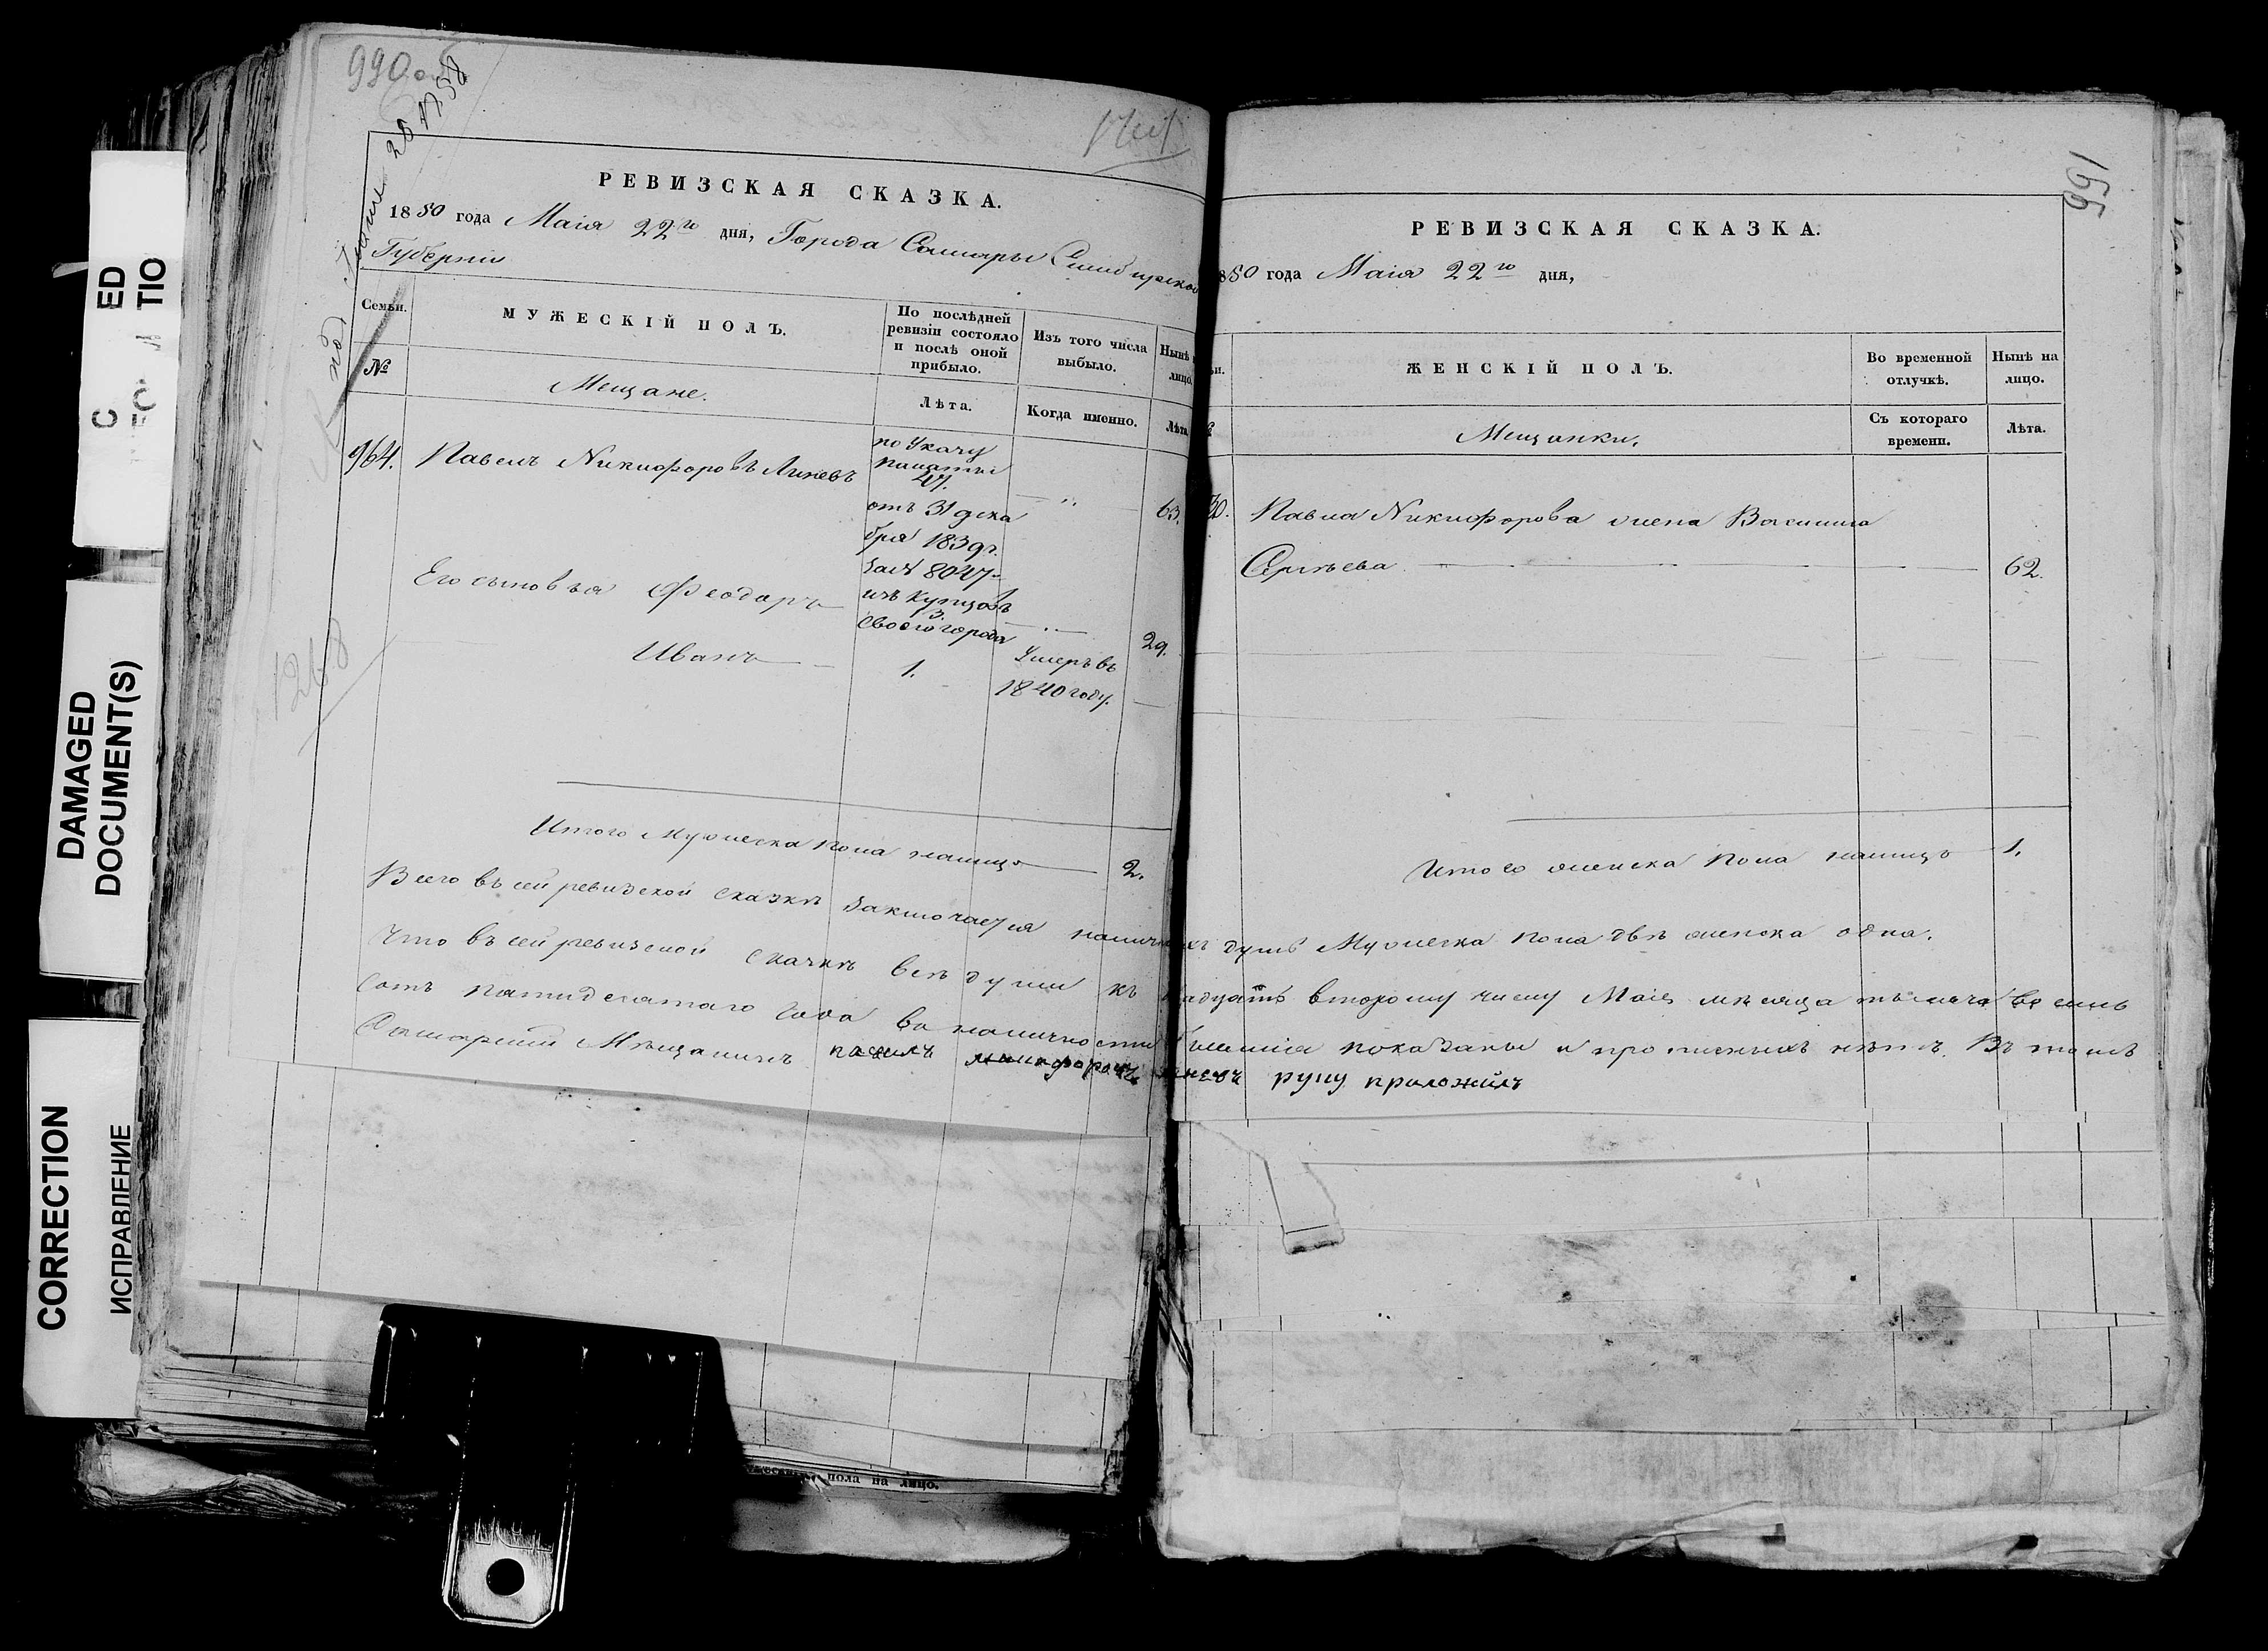 990 об
991
РЕВИЗСКАЯ СКАЗКА.
1850 года Маія 22го дня, Города Самары Симбирской
Губерніи
Семьи.
МУЖЕСКІЙ ПОЛЪ.
По послѣдней ревизіи состояло и послѣ оной прибыло.
Изъ того числа выбыло.
Нынѣ
лицо.
№
Мещане.
Лѣта.
Когда именно.
Лѣта.
964. Павелъ Никифоровъ Линевъ
по Указу
палаты
47.
отъ 31 дека
бря 1839 г.
за № 8047
изъ купцовъ
3.
своего города
63.
Его сыновья Феодоръ
29.
Иванъ
1.
Умеръ въ
1840 году.
Итого Мужеска пола налицо 2.
РЕВИЗСКАЯ СКАЗКА.
850 года Маія 22го дня,
ЖЕНСКІЙ ПОЛЪ.
Во временной отлучкѣ.
Нынѣ на лицо.
Мещанки.
Съ котораго времени.
Лѣта.
Павла Никифорова жена Василиса
Сергѣева 62.
Итого женска пола налицо 1.
Всего въ сей ревизской сказкѣ заключается наличныхъ душъ Мужеска пола двѣ женска одна.
Что въ сей ревизской сказкѣ всѣ души къ двадцать второму числу Маія мѣсяца тысяча восемь
сотъ пятидесятаго года въ наличности бывшія показаны и прописныхъ нѣтъ. Въ томъ
Самарскій Мѣщанинъ павелъ никифоровъ линевъ руку приложилъ
DAMAGED
DOCUMENT(S)
CORRECTION
ИСПРАВЛЕНИЕ
пола на лицо.